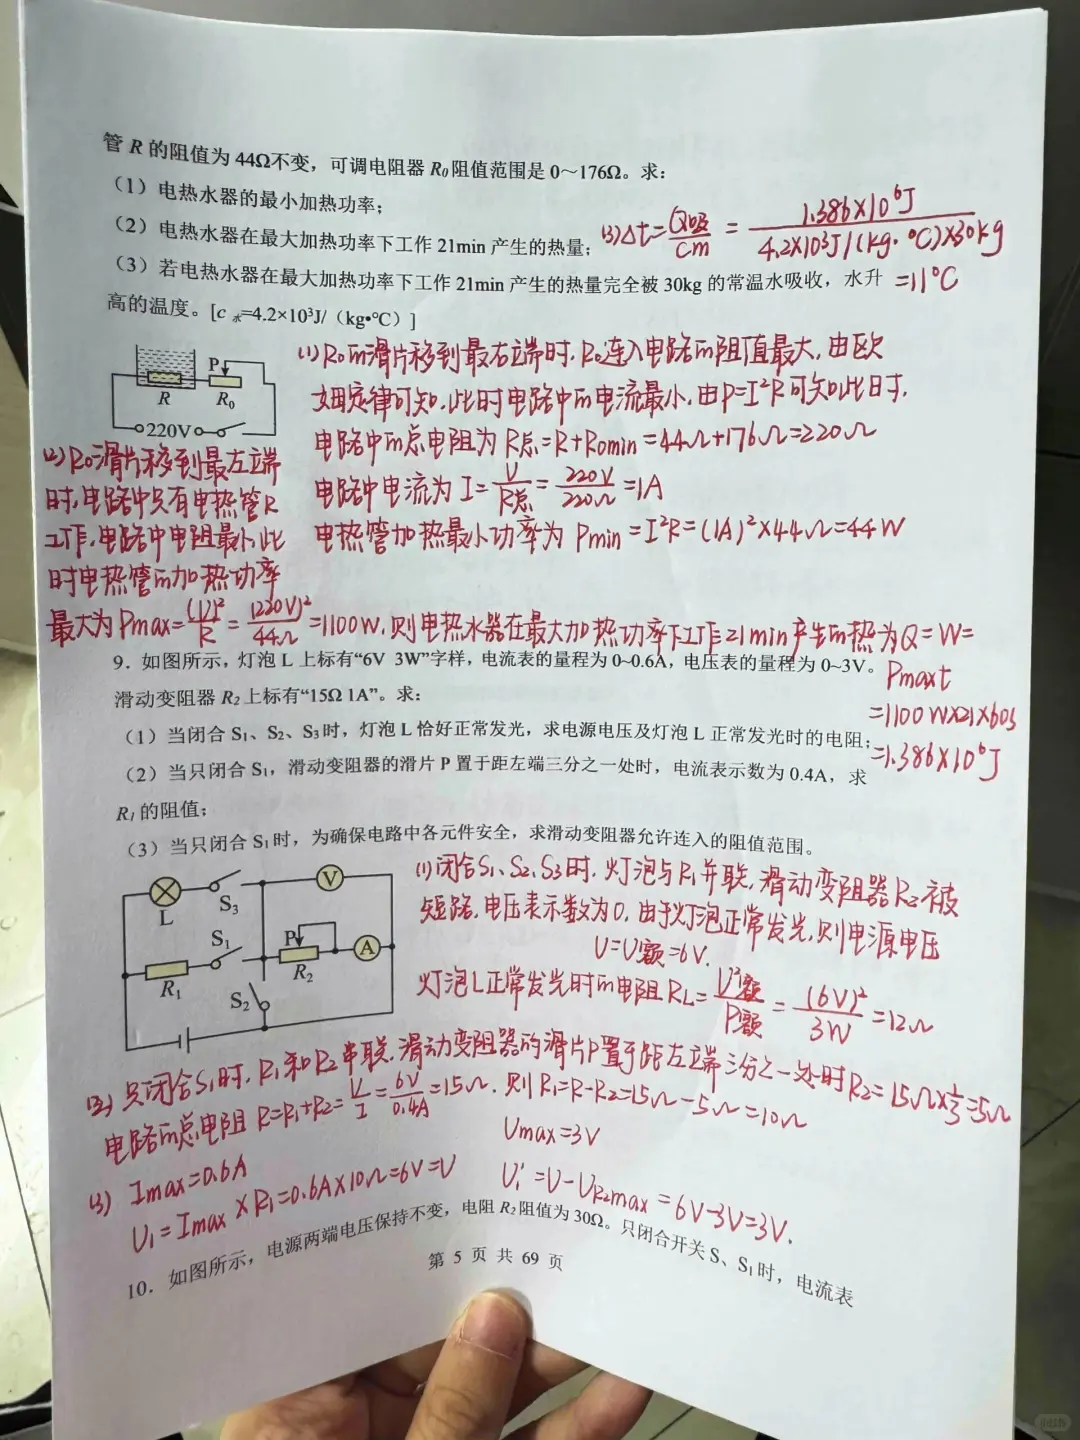 管 R 的阻值为 44Ω不变，可调电阻器 R₀ 阻值范围是 0～176Ω。求：
（1）电热水器的最小加热功率；
（2）电热水器在最大加热功率下工作 21min 产生的热量；
（3）若电热水器在最大加热功率下工作 21min 产生的热量完全被 30kg 的常温水吸收，水升
高的温度。[c 水=4.2×10³J/（kg•℃）]
(3)Δt=Q吸/cm = 1.386×10⁶J/4.2×10³J/(kg·℃)×30kg
=11℃
P
R
R₀
220V
(1) R₀的滑片移到最右端时，R₀连入电路的阻值最大，由欧
姆定律可知，此时电路中的电流最小，由P=I²R可知此时，
电路中的总电阻为 R总=R+R₀min=44Ω+176Ω=220Ω
电路中电流为 I=U/R总=220V/220Ω=1A
电热管加热最小功率为 Pmin=I²R=(1A)²×44Ω=44W
(2) R₀滑片移到最左端
时，电路中只有电热管R
工作，电路中电阻最小，此
时电热管的加热功率
最大为 Pmax=(U)²/R=(220V)²/44Ω=1100W，则电热水器在最大加热功率下工作21min产生的热为Q=W=
Pmaxt
=1100W×21×60s
=1.386×10⁶J
9．如图所示，灯泡 L 上标有“6V 3W”字样，电流表的量程为 0~0.6A，电压表的量程为 0~3V。
滑动变阻器 R₂ 上标有“15Ω 1A”。求：
（1）当闭合 S₁、S₂、S₃ 时，灯泡 L 恰好正常发光，求电源电压及灯泡 L 正常发光时的电阻；
（2）当只闭合 S₁，滑动变阻器的滑片 P 置于距左端三分之一处时，电流表示数为 0.4A，求
R₁ 的阻值；
（3）当只闭合 S₁ 时，为确保电路中各元件安全，求滑动变阻器允许连入的阻值范围。
L
S₃
V
S₁
P
A
R₁
R₂
S₂
(1)闭合S₁、S₂、S₃时，灯泡与R₁并联，滑动变阻器R₂被
短路，电压表示数为0，由于灯泡正常发光，则电源电压
U=U额=6V.
灯泡L正常发光时的电阻 RL=U²额/P额=(6V)²/3W=12Ω
(2) 只闭合S₁时，R₁和R₂串联，滑动变阻器的滑片P置于距左端三分之一处时R₂=15Ω×1/3=5Ω
电路的总电阻 R=R₁+R₂=U/I=6V/0.4A=15Ω，则R₁=R-R₂=15Ω-5Ω=10Ω
(3) Imax=0.6A
U₁=Imax×R₁=0.6A×10Ω=6V=U
Umax=3V
U₁'=U-UR₂max=6V-3V=3V.
10．如图所示，电源两端电压保持不变，电阻 R₂ 阻值为 30Ω。只闭合开关 S、S₁ 时，电流表
第 5 页 共 69 页